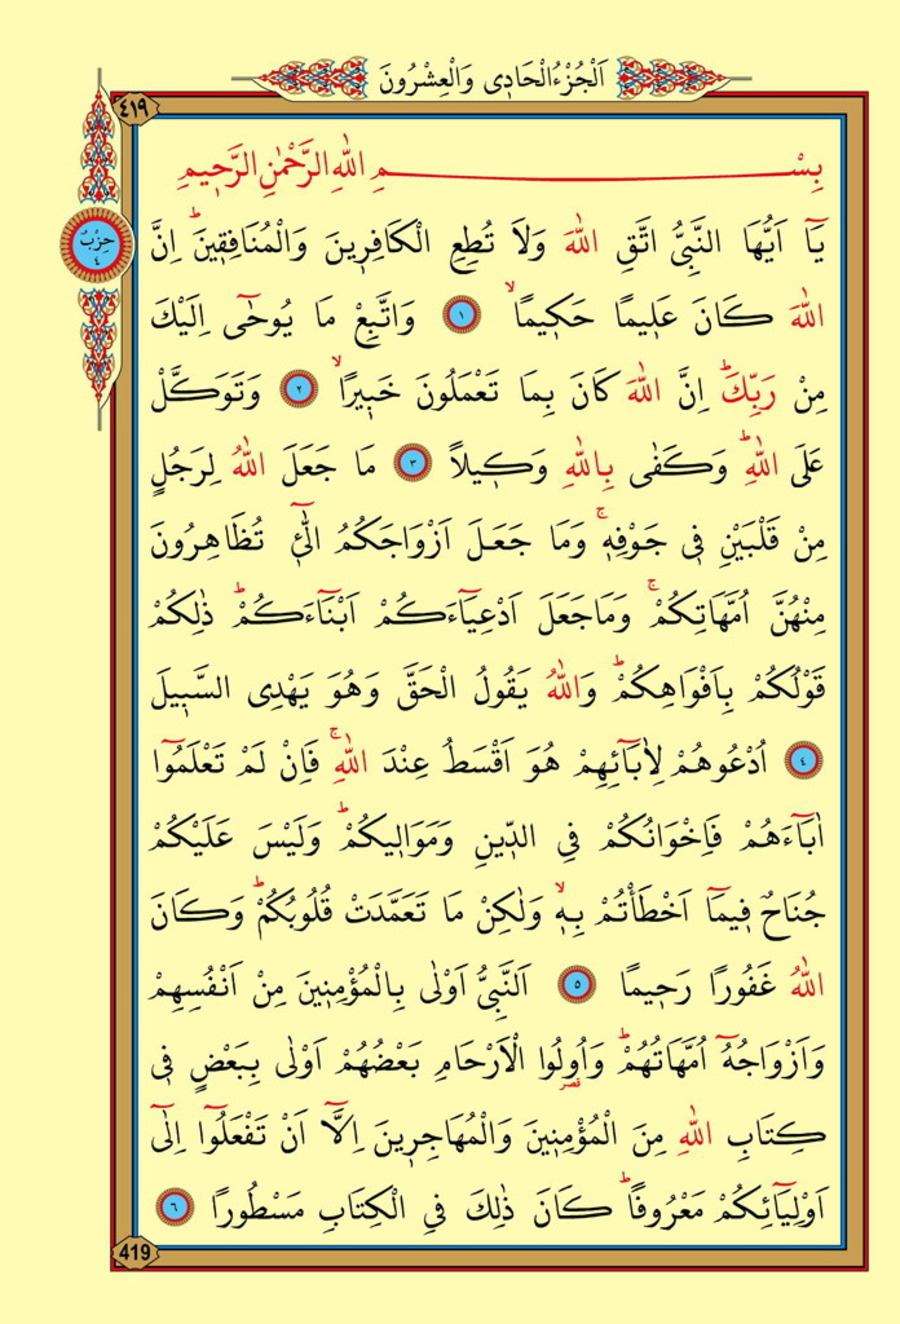 اَلْجُزْءُ الْحَادِى وَالْعِشْرُونَ
٤١٩
بِسْمِ اللّٰهِ الرَّحْمٰنِ الرَّحٖيمِ
حِزْبٌ
٤
يَٓا اَيُّهَا النَّبِىُّ اتَّقِ اللّٰهَ وَلَا تُطِعِ الْكَافِرٖينَ وَالْمُنَافِقٖينَؕ اِنَّ
اللّٰهَ كَانَ عَلٖيمًا حَكٖيمًاۙ ١ وَاتَّبِعْ مَا يُوحٰٓى اِلَيْكَ
مِنْ رَبِّكَؕ اِنَّ اللّٰهَ كَانَ بِمَا تَعْمَلُونَ خَبٖيرًاۙ ٢ وَتَوَكَّلْ
عَلَى اللّٰهِؕ وَكَفٰى بِاللّٰهِ وَكٖيلًا ٣ مَا جَعَلَ اللّٰهُ لِرَجُلٍ
مِنْ قَلْبَيْنِ فٖى جَوْفِهٖۚ وَمَا جَعَلَ اَزْوَاجَكُمُ الّٰٓـٖٔى تُظَاهِرُونَ
مِنْهُنَّ اُمَّهَاتِكُمْۚ وَمَا جَعَلَ اَدْعِيَٓاءَكُمْ اَبْنَٓاءَكُمْؕ ذٰلِكُمْ
قَوْلُكُمْ بِاَفْوَاهِكُمْؕ وَاللّٰهُ يَقُولُ الْحَقَّ وَهُوَ يَهْدِى السَّبٖيلَ
٤ اُدْعُوهُمْ لِاٰبَٓائِهِمْ هُوَ اَقْسَطُ عِنْدَ اللّٰهِۚ فَاِنْ لَمْ تَعْلَمُٓوا
اٰبَٓاءَهُمْ فَاِخْوَانُكُمْ فِى الدّٖينِ وَمَوَالٖيكُمْؕ وَلَيْسَ عَلَيْكُمْ
جُنَاحٌ فٖيمَٓا اَخْطَأْتُمْ بِهٖۙ وَلٰكِنْ مَا تَعَمَّدَتْ قُلُوبُكُمْؕ وَكَانَ
اللّٰهُ غَفُورًا رَحٖيمًا ٥ اَلنَّبِىُّ اَوْلٰى بِالْمُؤْمِنٖينَ مِنْ اَنْفُسِهِمْ
وَاَزْوَاجُهُٓ اُمَّهَاتُهُمْؕ وَاُولُوا الْاَرْحَامِ بَعْضُهُمْ اَوْلٰى بِبَعْضٍ فٖى
قصر
كِتَابِ اللّٰهِ مِنَ الْمُؤْمِنٖينَ وَالْمُهَاجِرٖينَ اِلَّٓا اَنْ تَفْعَلُٓوا اِلٰٓى
اَوْلِيَٓائِكُمْ مَعْرُوفًاؕ كَانَ ذٰلِكَ فِى الْكِتَابِ مَسْطُورًا ٦
419